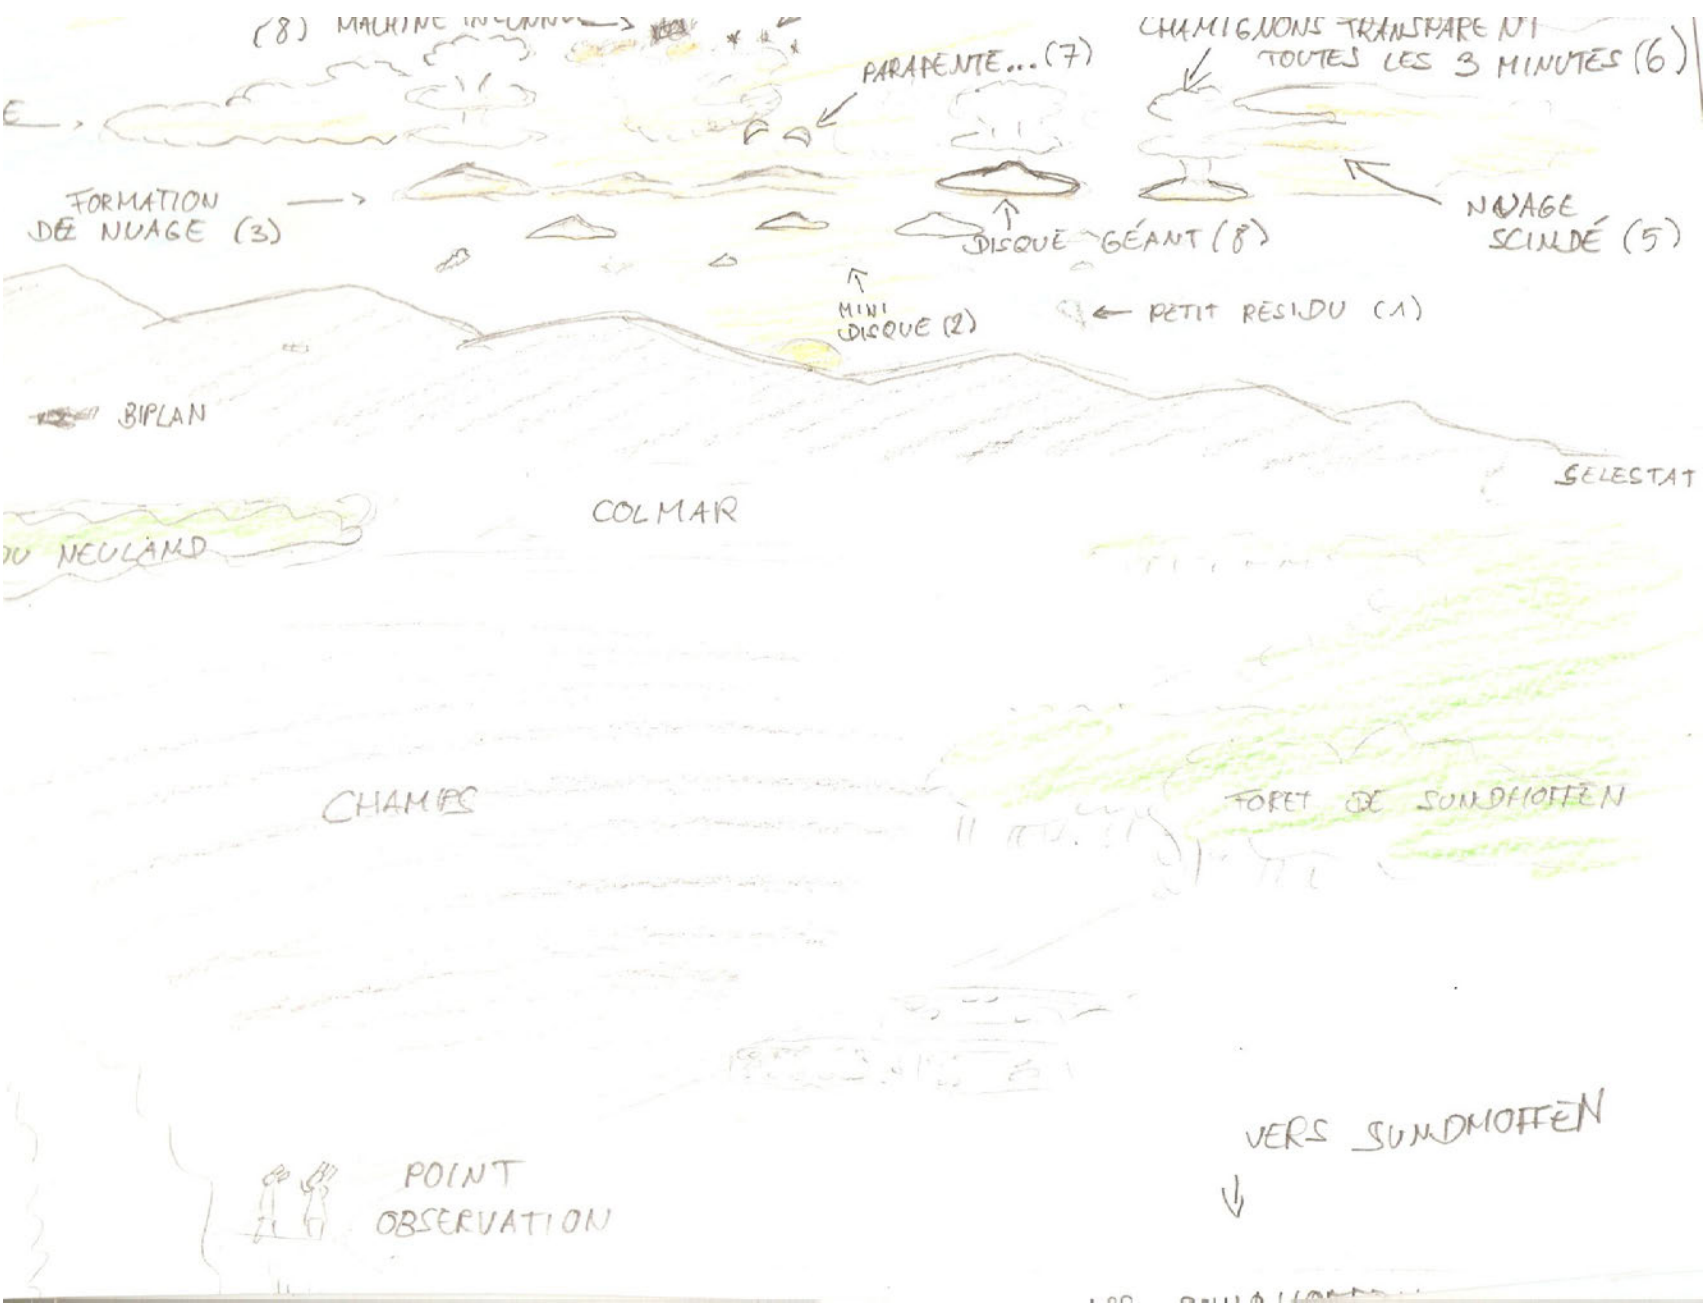 (8) MACHINE INCONNUE
CHAMIGNONS TRANSPARENT
TOUTES LES 3 MINUTES (6)
PARAPENTE...(7)
E
FORMATION
DE NUAGE (3)
DISQUE GÉANT (8)
NUAGE
SCINDÉ (5)
MINI
DISQUE (2)
PETIT RESIDU (1)
BIPLAN
SELESTAT
COLMAR
DU NEULAND
CHAMPS
FORET DE SUNDHOFFEN
VERS SUNDHOFFEN
POINT
OBSERVATION